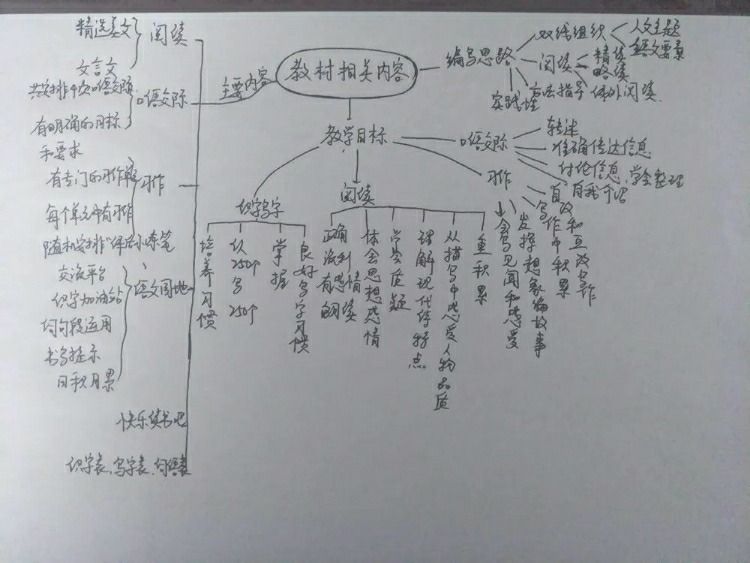 教材相关内容
编写思路
双线组织
人文主题
语文要素
阅读
精读
略读
课外阅读
方法指导
实践性
主要内容
阅读
精选美文
文言文
口语交际
共安排4次口语交际
有明确的目标
和要求
习作
有专门的习作
每个单元有习作
随机安排"课后小练笔
语文园地
交流平台
识字加油站
词句段运用
书写提示
日积月累
快乐读书吧
识字表、写字表、词语表
教学目标
识字写字
培养习惯
认250个
写250个
掌握
良好写字习惯
阅读
正确流利有感情朗读
体会思想感情
学会质疑
理解现代诗特点
从描写中感受人物品质
重积累
口语交际
转述
准确传达信息
讨论信息,学会整理
自我介绍
习作
会写见闻和感受
发挥想象编故事
写作中积累
自改和互改习作